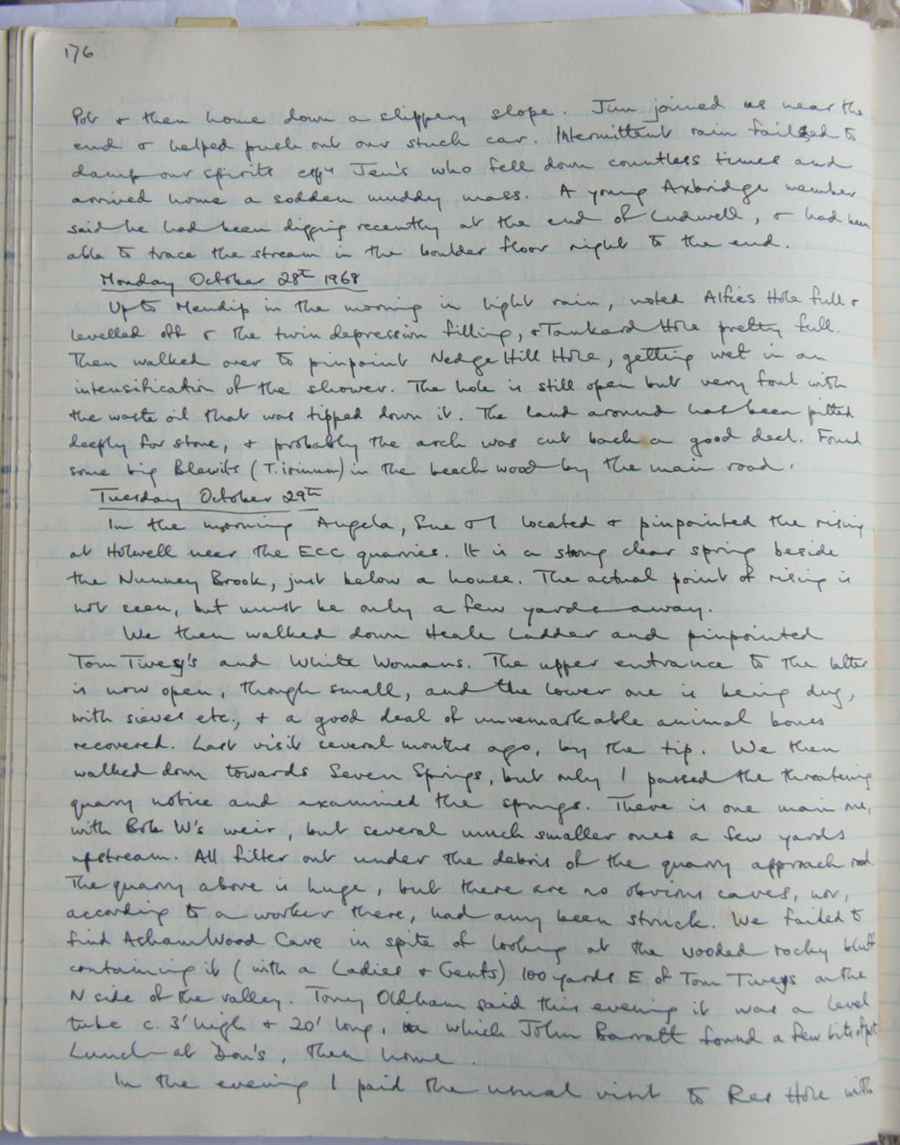 176
Pot & then home down a slippery slope. Jim joined us near the
end & helped push out our stuck car. Intermittent rain failed to
damp our spirits esp. Jen's who fell down countless times and
arrived home a sodden muddy mass. A young Axbridge member
said he had been digging recently at the end of Ludwell, & had been
able to trace the stream in the boulder floor right to the end.
Monday October 28th 1968
Up to Mendip in the morning in light rain, noted Alfies Hole full &
levelled off & the twin depression filling, & Tankard Hole pretty full.
Then walked over to pinpoint Nedge Hill Hole, getting wet in an
intensification of the shower. The hole is still open but very foul with
the waste oil that was tipped down it. The land around has been pitted
deeply for stone, & probably the arch was cut back a good deal. Found
some big Blewits (T. irinum) in the beech wood by the main road.
Tuesday October 29th
In the morning Angela, Sue & I located & pinpointed the rising
at Holwell near the ECC quarries. It is a strong clear spring beside
the Nunney Brook, just below a house. The actual point of rising is
not seen, but must be only a few yards away.
We then walked down Heale Ladder and pinpointed
Tom Tivey's and White Womans. The upper entrance to the latter
is now open, though small, and the lower one is being dug,
with sieves etc., & a good deal of unremarkable animal bones
recovered. Last visit several months ago, by the tip. We then
walked down towards Seven Springs, but only I passed the threatening
quarry notice and examined the springs. There is one main one,
with Bob W's weir, but several much smaller ones a few yards
upstream. All filter out under the debris of the quarry approach road.
The quarry above is huge, but there are no obvious caves, nor,
according to a worker there, had any been struck. We failed to
find Asham Wood Cave in spite of looking at the wooded rocky bluff
containing it (with a Ladies & Gents) 100 yards E of Tom Tiveys on the
N side of the valley. Tony Oldham said this evening it was a level
tube c. 3' high & 20' long, in which John Barratt found a few bits of pot
Lunch at Dan's, then home.
In the evening I paid the usual visit to Res Hole with